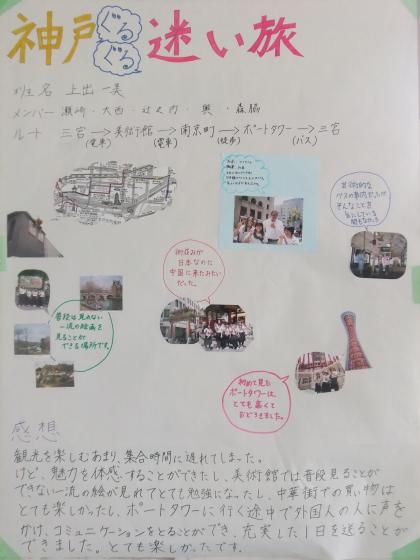 神戸ぐるぐる迷い旅
班名 上出 一美
メンバー 瀬崎・大西・辻之内・奥・森脇
ルート 三宮→美術館→南京町→ポートタワー→三宮
(電車) (電車) (徒歩) (バス)
芸術的な
バスの車内だったが
そんなことを
気にしている
間もなかった
街並みが
日本なのに
中国に来たみたい
だった。
普段は見れない
一流の絵画を
見ることが
できる場所です。
初めて見た
ポートタワーは、
とても高くて
おどろきました。
感想
観光を楽しむあまり、集合時間に遅れてしまった。
けど、魅力を体感することができたし、美術館では普段見ることが
できない一流の絵が見れてとても勉強になったし、中華街での買い物は
とても楽しかったし、ポートタワーに行く途中で外国人の人に声を
かけ、コミュニケーションをとることができ、充実した1日を送ることが
できました。とても楽しかったです。